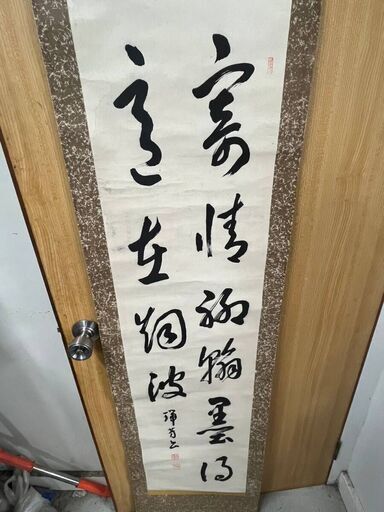 寄情聊翰墨得
意在烟波